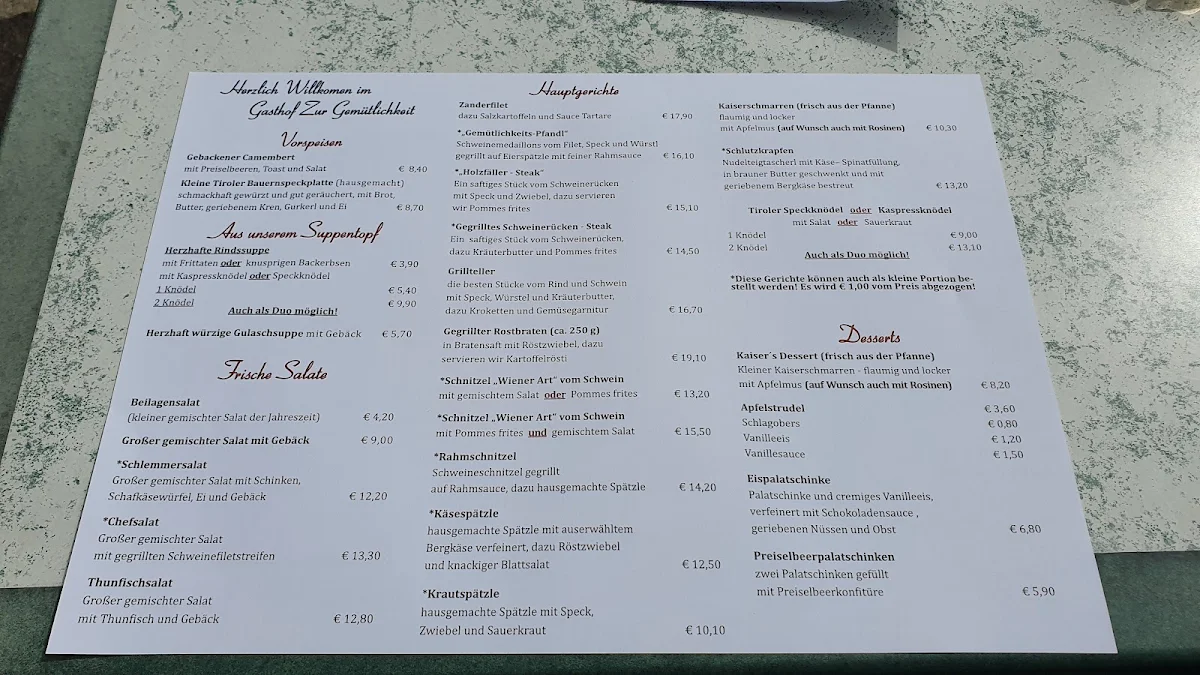 Herzlich Willkomen im
Gasthof Zur Gemütlichkeit
Vorspeisen
Gebackener Camembert
mit Preiselbeeren, Toast und Salat € 8,40
Kleine Tiroler Bauernspeckplatte (hausgemacht)
schmackhaft gewürzt und gut geräuchert, mit Brot,
Butter, geriebenem Kren, Gurkerl und Ei € 8,70
Aus unserem Suppentopf
Herzhafte Rindssuppe
mit Frittaten oder knusprigen Backerbsen € 3,90
mit Kaspressknödel oder Speckknödel
1 Knödel € 5,40
2 Knödel € 9,90
Auch als Duo möglich!
Herzhaft würzige Gulaschsuppe mit Gebäck € 5,70
Frische Salate
Beilagensalat
(kleiner gemischter Salat der Jahreszeit) € 4,20
Großer gemischter Salat mit Gebäck € 9,00
*Schlemmersalat
Großer gemischter Salat mit Schinken,
Schafkäsewürfel, Ei und Gebäck € 12,20
*Chefsalat
Großer gemischter Salat
mit gegrillten Schweinefiletstreifen € 13,30
Thunfischsalat
Großer gemischter Salat
mit Thunfisch und Gebäck € 12,80
Hauptgerichte
Zanderfilet
dazu Salzkartoffeln und Sauce Tartare € 17,90
*„Gemütlichkeits-Pfandl"
Schweinemedaillons vom Filet, Speck und Würstl
gegrillt auf Eierspätzle mit feiner Rahmsauce € 16,10
*„Holzfäller - Steak"
Ein saftiges Stück vom Schweinerücken
mit Speck und Zwiebel, dazu servieren
wir Pommes frites € 15,10
*Gegrilltes Schweinerücken - Steak
Ein saftiges Stück vom Schweinerücken,
dazu Kräuterbutter und Pommes frites € 14,50
Grillteller
die besten Stücke vom Rind und Schwein
mit Speck, Würstel und Kräuterbutter,
dazu Kroketten und Gemüsegarnitur € 16,70
Gegrillter Rostbraten (ca. 250 g)
in Bratensaft mit Röstzwiebel, dazu
servieren wir Kartoffelrösti € 19,10
*Schnitzel „Wiener Art" vom Schwein
mit gemischtem Salat oder Pommes frites € 13,20
*Schnitzel „Wiener Art" vom Schwein
mit Pommes frites und gemischtem Salat € 15,50
*Rahmschnitzel
Schweineschnitzel gegrillt
auf Rahmsauce, dazu hausgemachte Spätzle € 14,20
*Käsespätzle
hausgemachte Spätzle mit auserwähltem
Bergkäse verfeinert, dazu Röstzwiebel
und knackiger Blattsalat € 12,50
*Krautspätzle
hausgemachte Spätzle mit Speck,
Zwiebel und Sauerkraut € 10,10
Kaiserschmarren (frisch aus der Pfanne)
flaumig und locker
mit Apfelmus (auf Wunsch auch mit Rosinen) € 10,30
*Schlutzkrapfen
Nudelteigtascherl mit Käse– Spinatfüllung,
in brauner Butter geschwenkt und mit
geriebenem Bergkäse bestreut € 13,20
Tiroler Speckknödel oder Kaspressknödel
mit Salat oder Sauerkraut
1 Knödel € 9,00
2 Knödel € 13,10
Auch als Duo möglich!
*Diese Gerichte können auch als kleine Portion be-
stellt werden! Es wird € 1,00 vom Preis abgezogen!
Desserts
Kaiser´s Dessert (frisch aus der Pfanne)
Kleiner Kaiserschmarren - flaumig und locker
mit Apfelmus (auf Wunsch auch mit Rosinen) € 8,20
Apfelstrudel € 3,60
Schlagobers € 0,80
Vanilleeis € 1,20
Vanillesauce € 1,50
Eispalatschinke
Palatschinke und cremiges Vanilleeis,
verfeinert mit Schokoladensauce ,
geriebenen Nüssen und Obst € 6,80
Preiselbeerpalatschinken
zwei Palatschinken gefüllt
mit Preiselbeerkonfitüre € 5,90